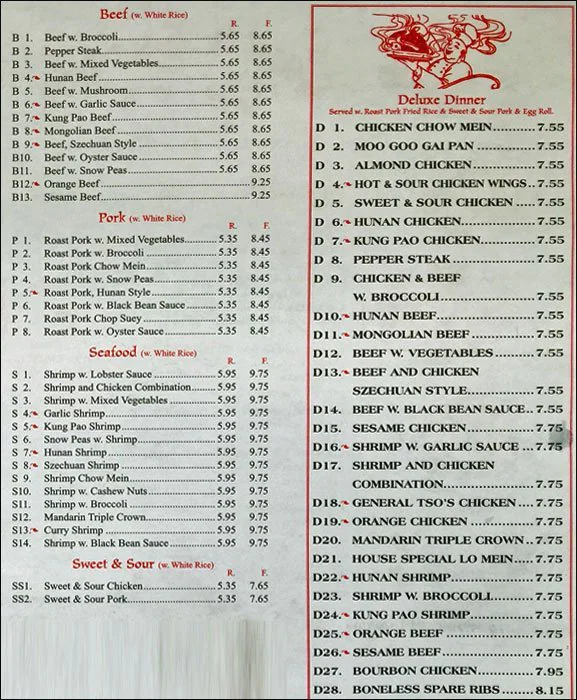 Beef (w. White Rice)
R. F.
B 1. Beef w. Broccoli 5.65 8.65
B 2. Pepper Steak 5.65 8.65
B 3. Beef w. Mixed Vegetables 5.65 8.65
B 4. Hunan Beef 5.65 8.65
B 5. Beef w. Mushroom 5.65 8.65
B 6. Beef w. Garlic Sauce 5.65 8.65
B 7. Kung Pao Beef 5.65 8.65
B 8. Mongolian Beef 5.65 8.65
B 9. Beef, Szechuan Style 5.65 8.65
B10. Beef w. Oyster Sauce 5.65 8.65
B11. Beef w. Snow Peas 5.65 8.65
B12. Orange Beef 9.25
B13. Sesame Beef 9.25
Pork (w. White Rice)
R. F.
P 1. Roast Pork w. Mixed Vegetables 5.35 8.45
P 2. Roast Pork w. Broccoli 5.35 8.45
P 3. Roast Pork Chow Mein 5.35 8.45
P 4. Roast Pork w. Snow Peas 5.35 8.45
P 5. Roast Pork, Hunan Style 5.35 8.45
P 6. Roast Pork w. Black Bean Sauce 5.35 8.45
P 7. Roast Pork Chop Suey 5.35 8.45
P 8. Roast Pork w. Oyster Sauce 5.35 8.45
Seafood (w. White Rice)
R. F.
S 1. Shrimp w. Lobster Sauce 5.95 9.75
S 2. Shrimp and Chicken Combination 5.95 9.75
S 3. Shrimp w. Mixed Vegetables 5.95 9.75
S 4. Garlic Shrimp 5.95 9.75
S 5. Kung Pao Shrimp 5.95 9.75
S 6. Snow Peas w. Shrimp 5.95 9.75
S 7. Hunan Shrimp 5.95 9.75
S 8. Szechuan Shrimp 5.95 9.75
S 9. Shrimp Chow Mein 5.95 9.75
S10. Shrimp w. Cashew Nuts 5.95 9.75
S11. Shrimp w. Broccoli 5.95 9.75
S12. Mandarin Triple Crown 5.95 9.75
S13. Curry Shrimp 5.95 9.75
S14. Shrimp w. Black Bean Sauce 5.95 9.75
Sweet & Sour (w. White Rice)
R. F.
SS1. Sweet & Sour Chicken 5.35 7.65
SS2. Sweet & Sour Pork 5.35 7.65
Deluxe Dinner
Served w. Roast Pork Fried Rice & Sweet & Sour Pork & Egg Roll.
D 1. CHICKEN CHOW MEIN 7.55
D 2. MOO GOO GAI PAN 7.55
D 3. ALMOND CHICKEN 7.55
D 4. HOT & SOUR CHICKEN WINGS 7.55
D 5. SWEET & SOUR CHICKEN 7.55
D 6. HUNAN CHICKEN 7.55
D 7. KUNG PAO CHICKEN 7.55
D 8. PEPPER STEAK 7.55
D 9. CHICKEN & BEEF
W. BROCCOLI 7.55
D10. HUNAN BEEF 7.55
D11. MONGOLIAN BEEF 7.55
D12. BEEF W. VEGETABLES 7.55
D13. BEEF AND CHICKEN
SZECHUAN STYLE 7.55
D14. BEEF W. BLACK BEAN SAUCE 7.55
D15. SESAME CHICKEN 7.75
D16. SHRIMP W. GARLIC SAUCE 7.75
D17. SHRIMP AND CHICKEN
COMBINATION 7.75
D18. GENERAL TSO'S CHICKEN 7.75
D19. ORANGE CHICKEN 7.75
D20. MANDARIN TRIPLE CROWN 7.75
D21. HOUSE SPECIAL LO MEIN 7.75
D22. HUNAN SHRIMP 7.75
D23. SHRIMP W. BROCCOLI 7.75
D24. KUNG PAO SHRIMP 7.75
D25. ORANGE BEEF 7.75
D26. SESAME BEEF 7.75
D27. BOURBON CHICKEN 7.95
D28. BONELESS SPARE RIBS 8.15